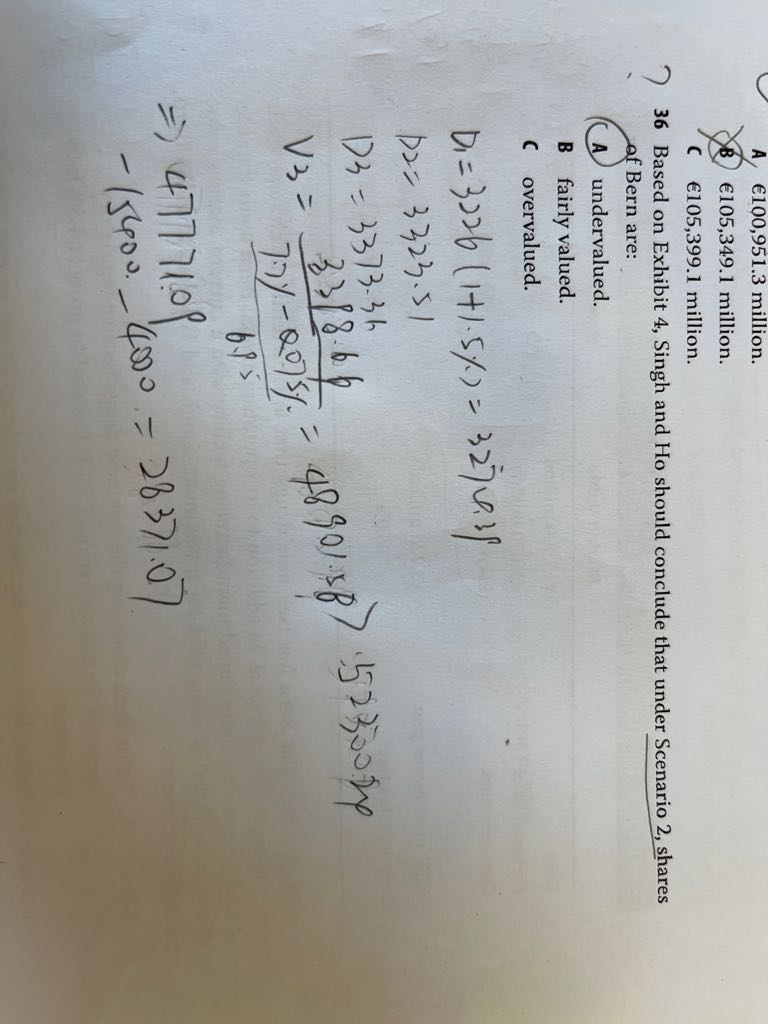 A €100,951.3 million.
B €105,349.1 million.
C €105,399.1 million.
? 36 Based on Exhibit 4, Singh and Ho should conclude that under Scenario 2, shares
of Bern are:
A undervalued.
B fairly valued.
C overvalued.
D1 = 3226 (1+1.5%) = 3274.39
D2 = 3323.51
D3 = 3373.36
V3 = 3398.66 / 7.7% - 0.75% = 48901.58 >
6.95
=> 47771.09
- 15400 - 4000 = 28371.07